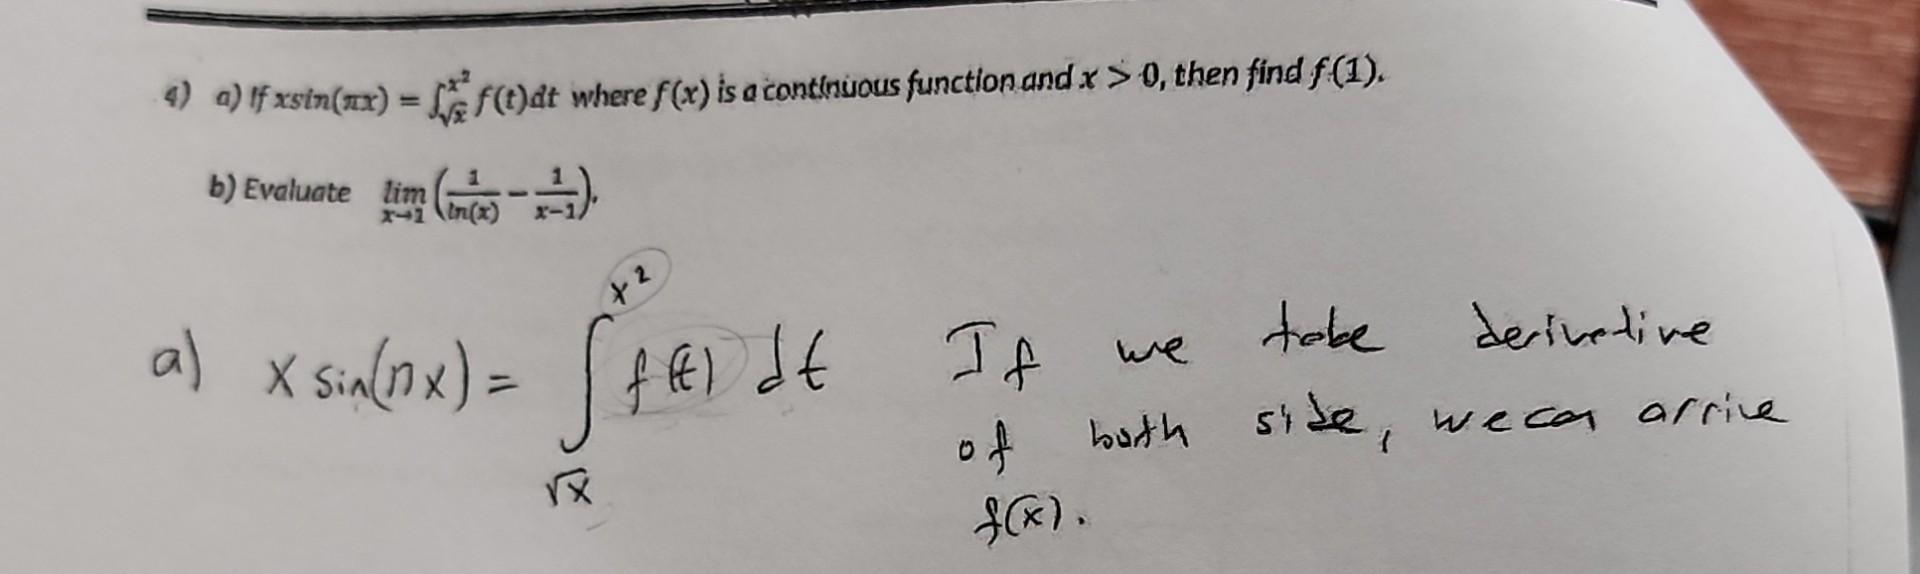 4) a) If xsin(πx) = ∫_{√x}^{x²} f(t)dt where f(x) is a continuous function and x > 0, then find f(1).
b) Evaluate lim_{x→1} (1/ln(x) − 1/(x−1)).
a) x sin(πx) = ∫_{√x}^{x²} f(t) dt If we take derivative
of both side, we can arrive
f(x).